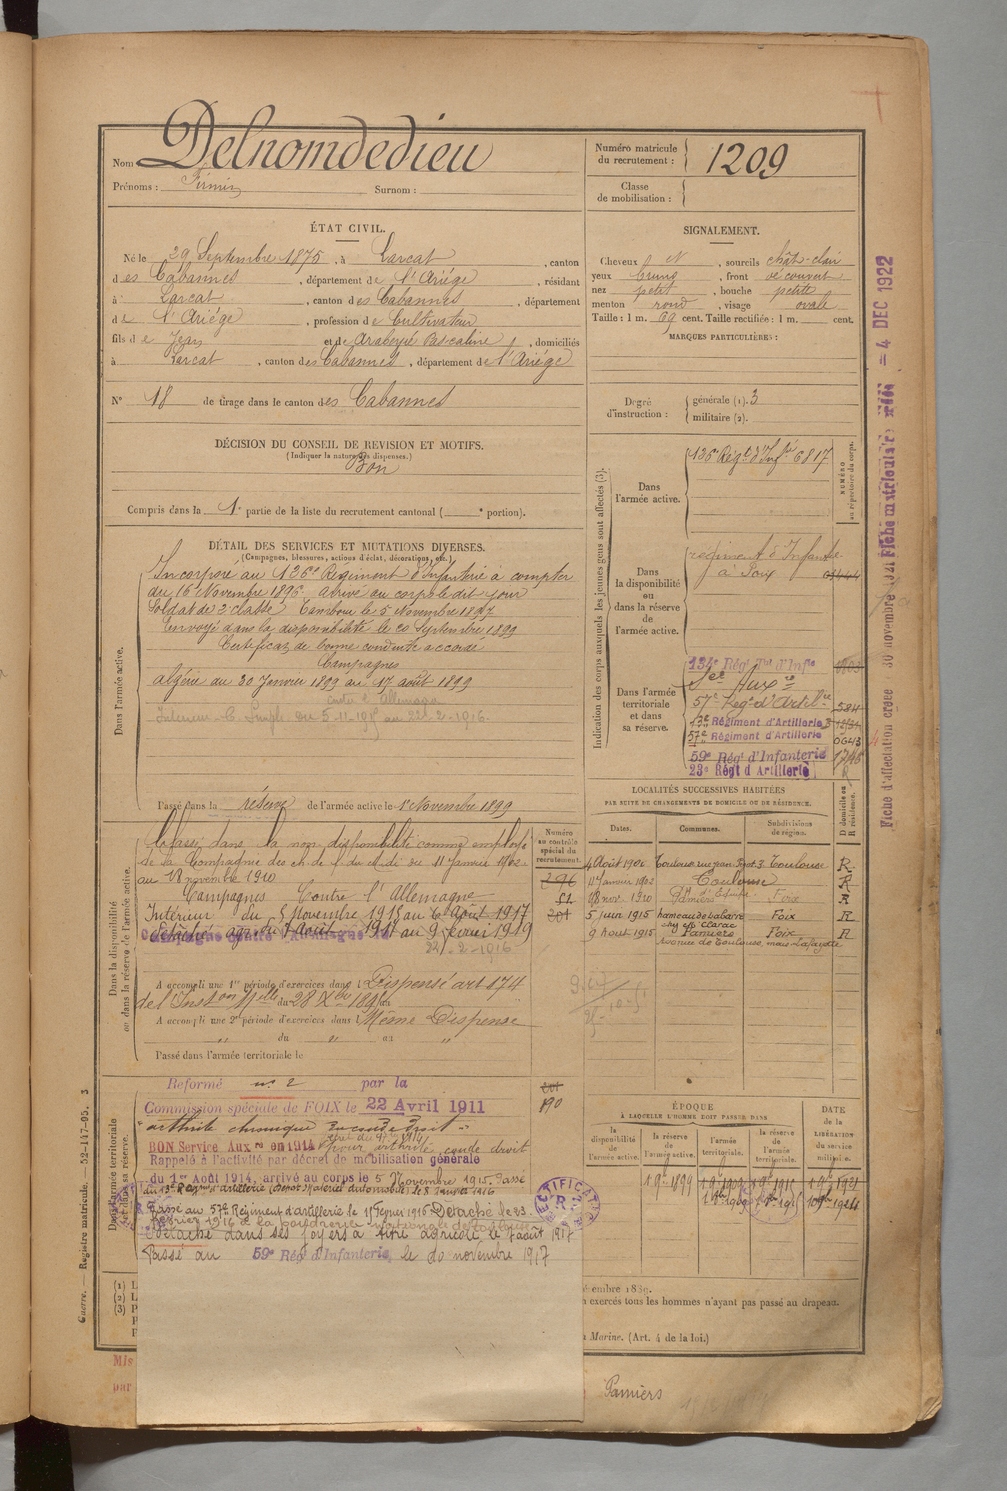 Nom Delnomdedieu
Prénoms : Firmin Surnom :
Numéro matricule du recrutement : 1209
Classe de mobilisation :
ÉTAT CIVIL.
Né le 29 Septembre 1875, à Larcat, canton
des Cabannes, département de l'Ariége, résidant
à Larcat, canton des Cabannes, département
de l'Ariége, profession de Cultivateur
fils de Jean et de Pascaline, domiciliés
à Larcat, canton des Cabannes, département de l'Ariége
N° 18 de tirage dans le canton des Cabannes
DÉCISION DU CONSEIL DE REVISION ET MOTIFS.
(Indiquer la nature des dispenses.)
Bon
Compris dans la 1e partie de la liste du recrutement cantonal ( e portion).
SIGNALEMENT.
Cheveux N, sourcils chât-clair
yeux bruns, front découvert
nez petit, bouche petite
menton rond, visage ovale
Taille : 1 m. 69 cent. Taille rectifiée : 1 m. cent.
MARQUES PARTICULIÈRES :
Degré d'instruction : générale (1). 3
militaire (2).
DÉTAIL DES SERVICES ET MUTATIONS DIVERSES.
(Campagnes, blessures, actions d'éclat, décorations, etc.)
Dans l'armée active.
Incorporé au 136e Régiment d'Infanterie à compter
du 16 Novembre 1896. arrivé au corps le dit jour
Soldat de 2e classe Tambour le 5 Novembre 1897
Envoyé dans la disponibilité le 20 Septembre 1899
Certificat de bonne conduite accordé
Campagnes
Algérie du 30 Janvier 1899 au 17 août 1899
Passé dans la réserve de l'armée active le 1er Novembre 1899
Indication des corps auxquels les jeunes gens sont affectés (3).
NUMÉRO au répertoire du corps.
Dans l'armée active. 136e Régt d'Infrie 6817
Dans la disponibilité ou dans la réserve de l'armée active. régiment d'Infanterie
à Foix
Dans l'armée territoriale et dans sa réserve.
134e Régt Tal d'Infie
Sce Auxre
57e Régt d'Artillie 584
13e Régiment d'Artillerie
57e Régiment d'Artillerie 0643
59e Régt d'Infanterie
23e Régt d'Artillerie
Dans la disponibilité ou dans la réserve de l'armée active.
Classé dans la non disponibilité comme employé
de la Compagnie des ch. de f. du Midi du 11 Janvier 1902
au 18 novembre 1910
Campagnes Contre l'Allemagne
Intérieur du 5 Novembre 1915 au 6 Août 1917
22-2-1916
A accompli une 1re période d'exercices dans l Dispensé art 174
A accompli une 2e période d'exercices dans l Même Dispense
du au
Passé dans l'armée territoriale le
Numéro au contrôle spécial du recrutement.
296
51
201
201
190
LOCALITÉS SUCCESSIVES HABITÉES
PAR SUITE DE CHANGEMENTS DE DOMICILE OU DE RÉSIDENCE.
Dates. Communes. Subdivisions de région. D domicile ou R résidence.
4 Août 1900 Toulouse Toulouse R
11 Janvier 1902 Toulouse R
18 nov. 1910 Pamiers Foix R
5 juin 1915 hameau de Labarre Foix R
9 Août 1915 Pamiers Foix R
avenue de Toulouse, maison Lafayette
Dans l'armée territoriale et dans sa réserve.
Réformé n° 2 par la
Commission spéciale de FOIX le 22 Avril 1911
"arthrite chronique du coude droit."
BON Service Auxre en 1914 pour arthrite coude droit
Rappelé à l'activité par décret de mobilisation générale
du 1er Août 1914, arrivé au corps le 5 Novembre 1915. Passé
Passé au 57e Régiment d'artillerie le 1 Février 1916 Détaché le 23
février 1916 à la poudrerie nationale de Toulouse
Détaché dans ses foyers à titre agricole le 7 août 1917
Passé au 59e Rég d'Infanterie, le 20 novembre 1917
RECTIFICATIF
R
ÉPOQUE
À LAQUELLE L'HOMME DOIT PASSER DANS
la disponibilité de l'armée active. la réserve de l'armée active. l'armée territoriale. la réserve de l'armée territoriale.
DATE de la LIBÉRATION du service militaire.
1 9bre 1899
Fiche d'affectation créée 30 novembre 1921 Fiche matriculaire créée = 4 DEC 1922
Guerre. — Registre matricule. 52-147-95. 3
embre 1889.
n exercés tous les hommes n'ayant pas passé au drapeau.
a Marine. (Art. 4 de la loi.)
(1) L
(2) L
(3) P
Mis
par
Pamiers